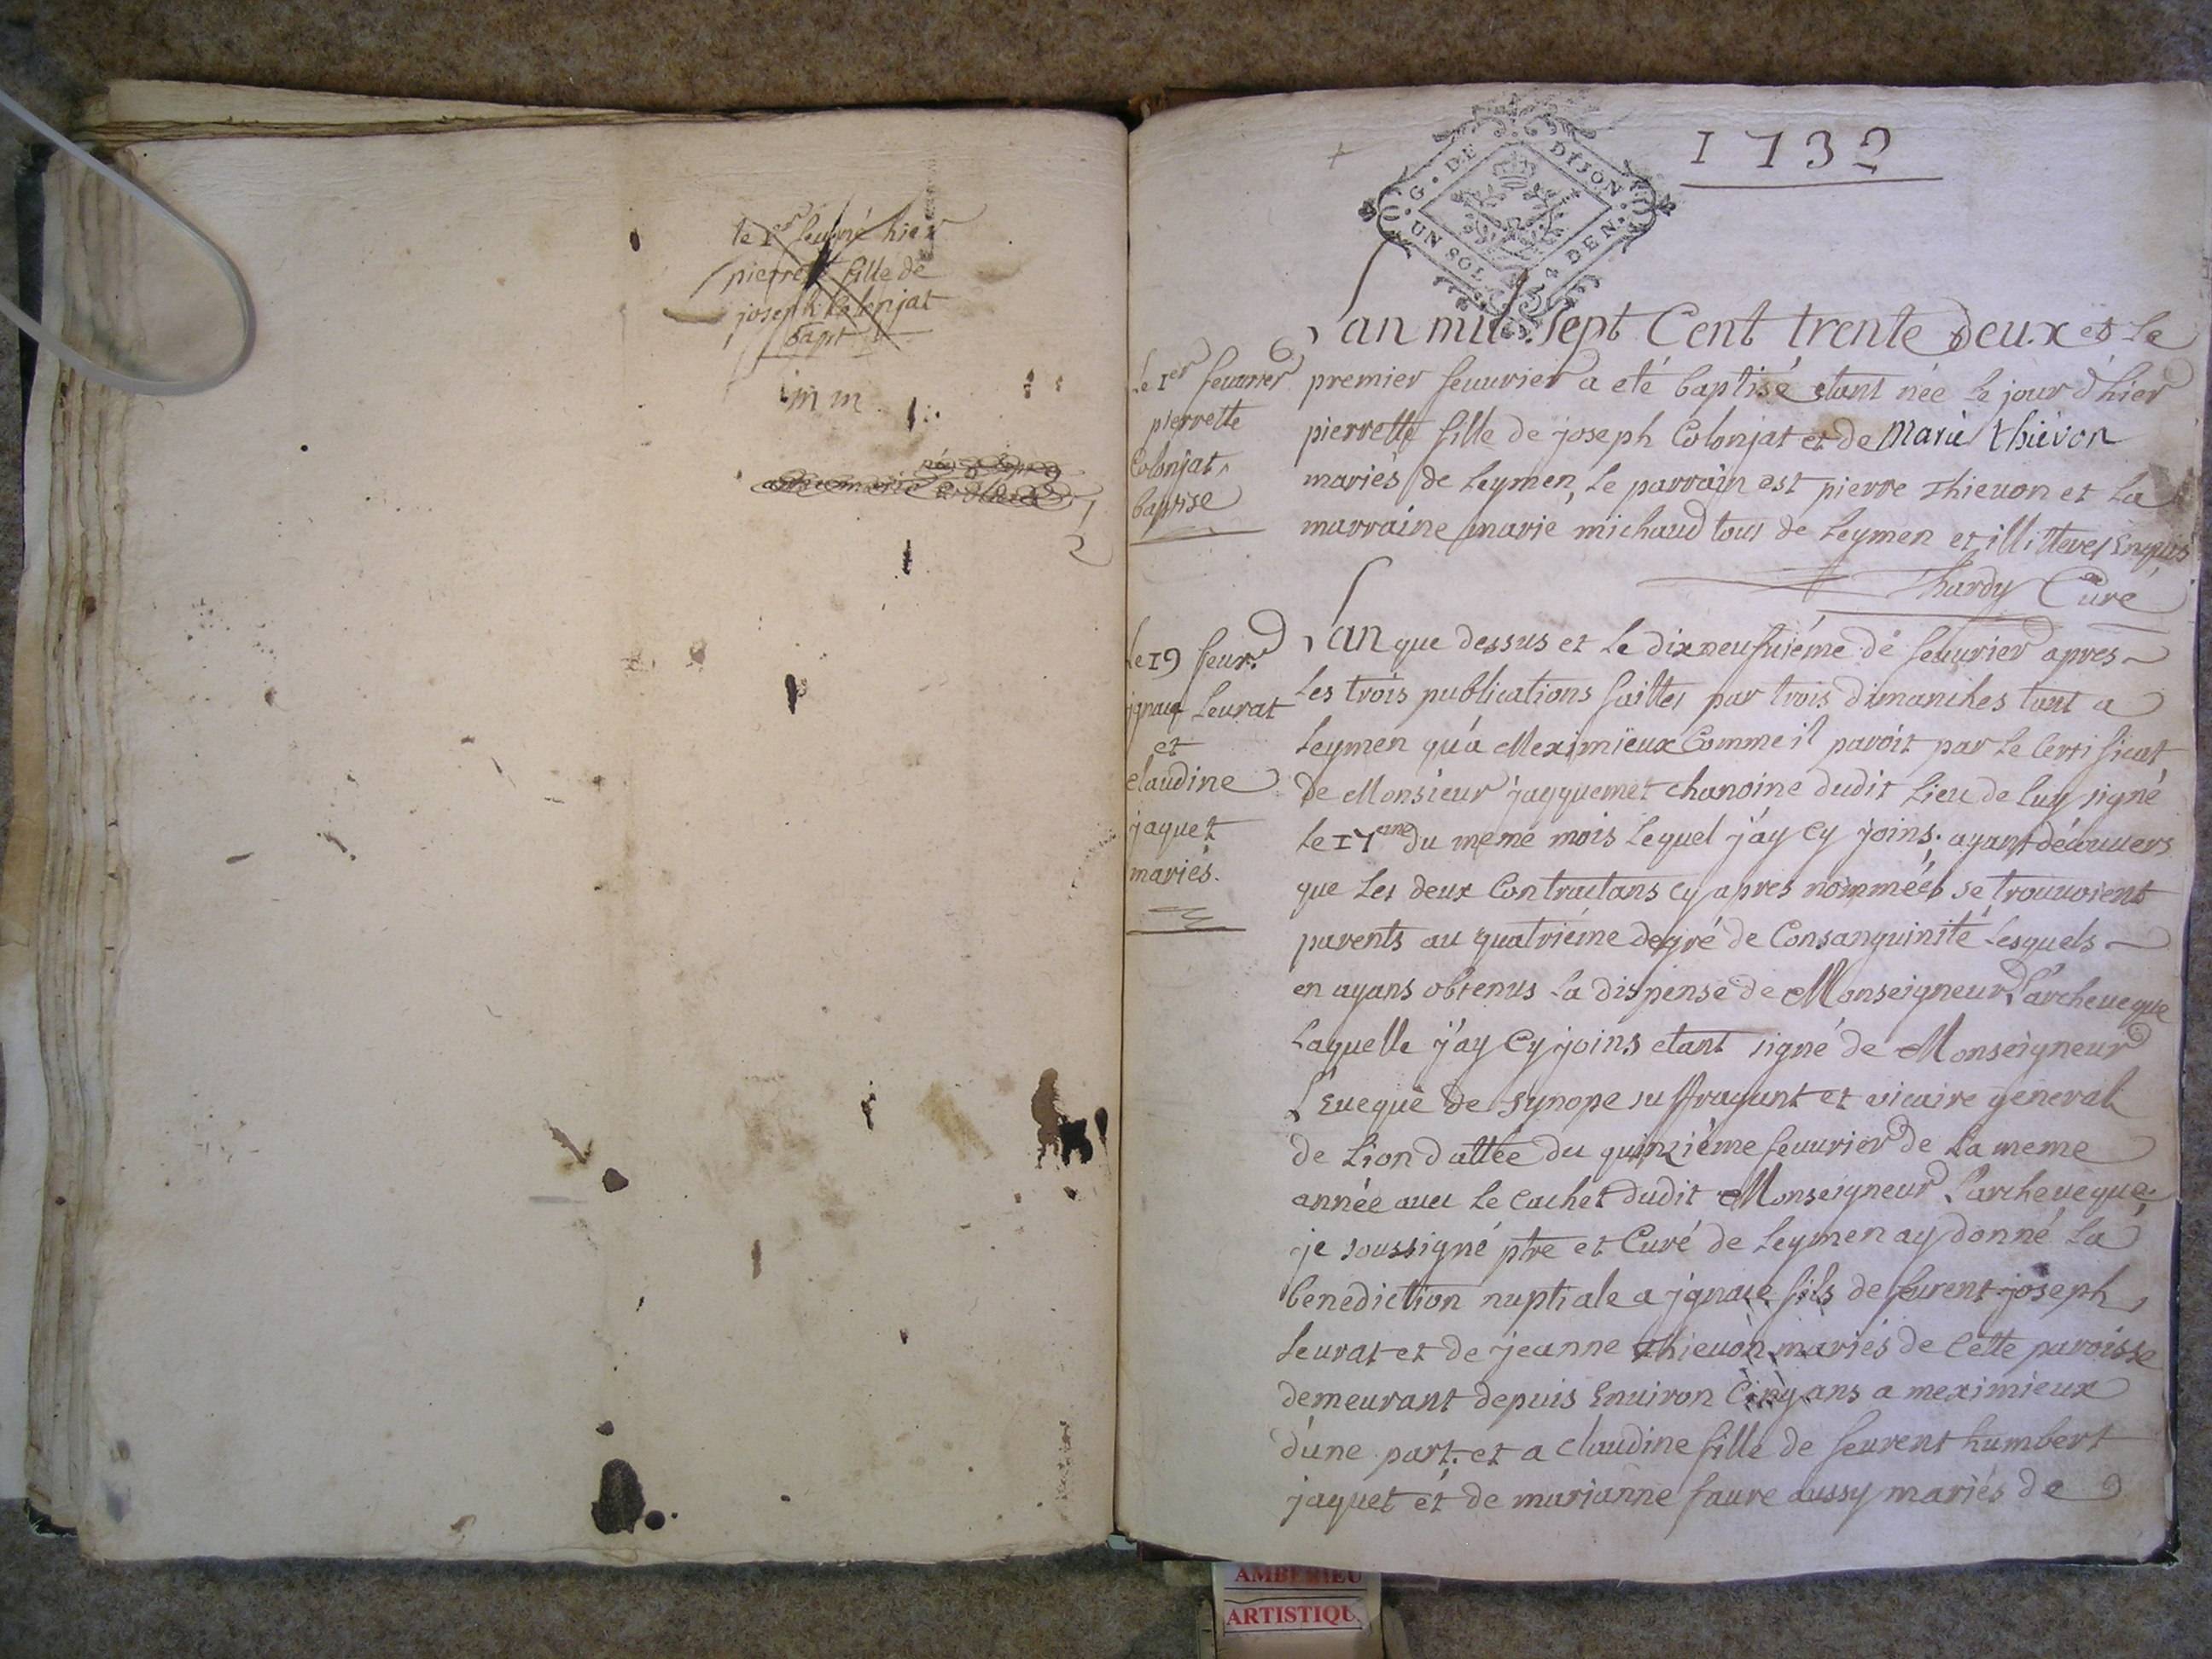 le 1er né hier
pierrette fille de
joseph Colonjat
bapt
m m
2
1732
G. DE DIJON
UN SOL 4 DEN.
Le 1er feuurier
pierrette
Colonjat
baptise
L'an mil sept Cent trente deux et le
premier feuurier a eté baptisé etant née le jour d'hier
pierrette fille de joseph Colonjat et de Marie thiévon
mariés de Leymen, Le parrain est pierre Thieuon et La
marraine marie michaud tous de Leymen et illitteres Enquis
Thardy Curé
Le 19 feur.
jgnace Leurat
et
claudine
jaquet
mariés.
L'an que dessus et Le dixneufuiéme de feuurier apres
Les trois publications faittes par trois dimanches tant a
Leymen qu'a Meximieux Comme il paroit par Le Certificat
de Monsieur jaqquemet chanoine dudit Lieu de luy signé
Le 17eme du meme mois Lequel j'ay Cy joins. ayant découuers
que Les deux Contractans Cy apres nommées se trouuoient
parents au quatriéme degré de Consanguinité Lesquels
en ayans obtenus La dispense de Monseigneur L'archeueque
Laquelle j'ay Cy joins etant signé de Monseigneur
L'Eueque de Synope suffragant et vicaire general
de Lion dattée du quinziéme feuurier de La meme
année auec Le Cachet dudit Monseigneur L'archeueque.
je soussigné ptre et Curé de Leymen ay donné La
benediction nuptiale a jgnace fils de feurent joseph
Leurat et de jeanne Thieuon mariés de Cette paroisse
demeurant depuis Enuiron Cinq ans a meximieux
d'une part. et a claudine fille de feurent humbert
jaquet et de marianne faure aussy mariés de
AMBERIEU
ARTISTIQU